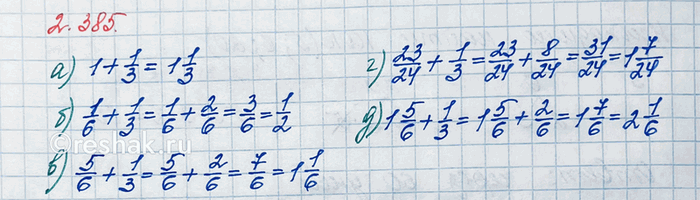 2.385.
а) 1 + 1/3 = 1 1/3
б) 1/6 + 1/3 = 1/6 + 2/6 = 3/6 = 1/2
в) 5/6 + 1/3 = 5/6 + 2/6 = 7/6 = 1 1/6
г) 23/24 + 1/3 = 23/24 + 8/24 = 31/24 = 1 7/24
д) 1 5/6 + 1/3 = 1 5/6 + 2/6 = 1 7/6 = 2 1/6
©reshak.ru